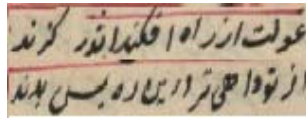 غولت از راه افکند اندر کزند
از تو داهی تر درین ره بس بدند